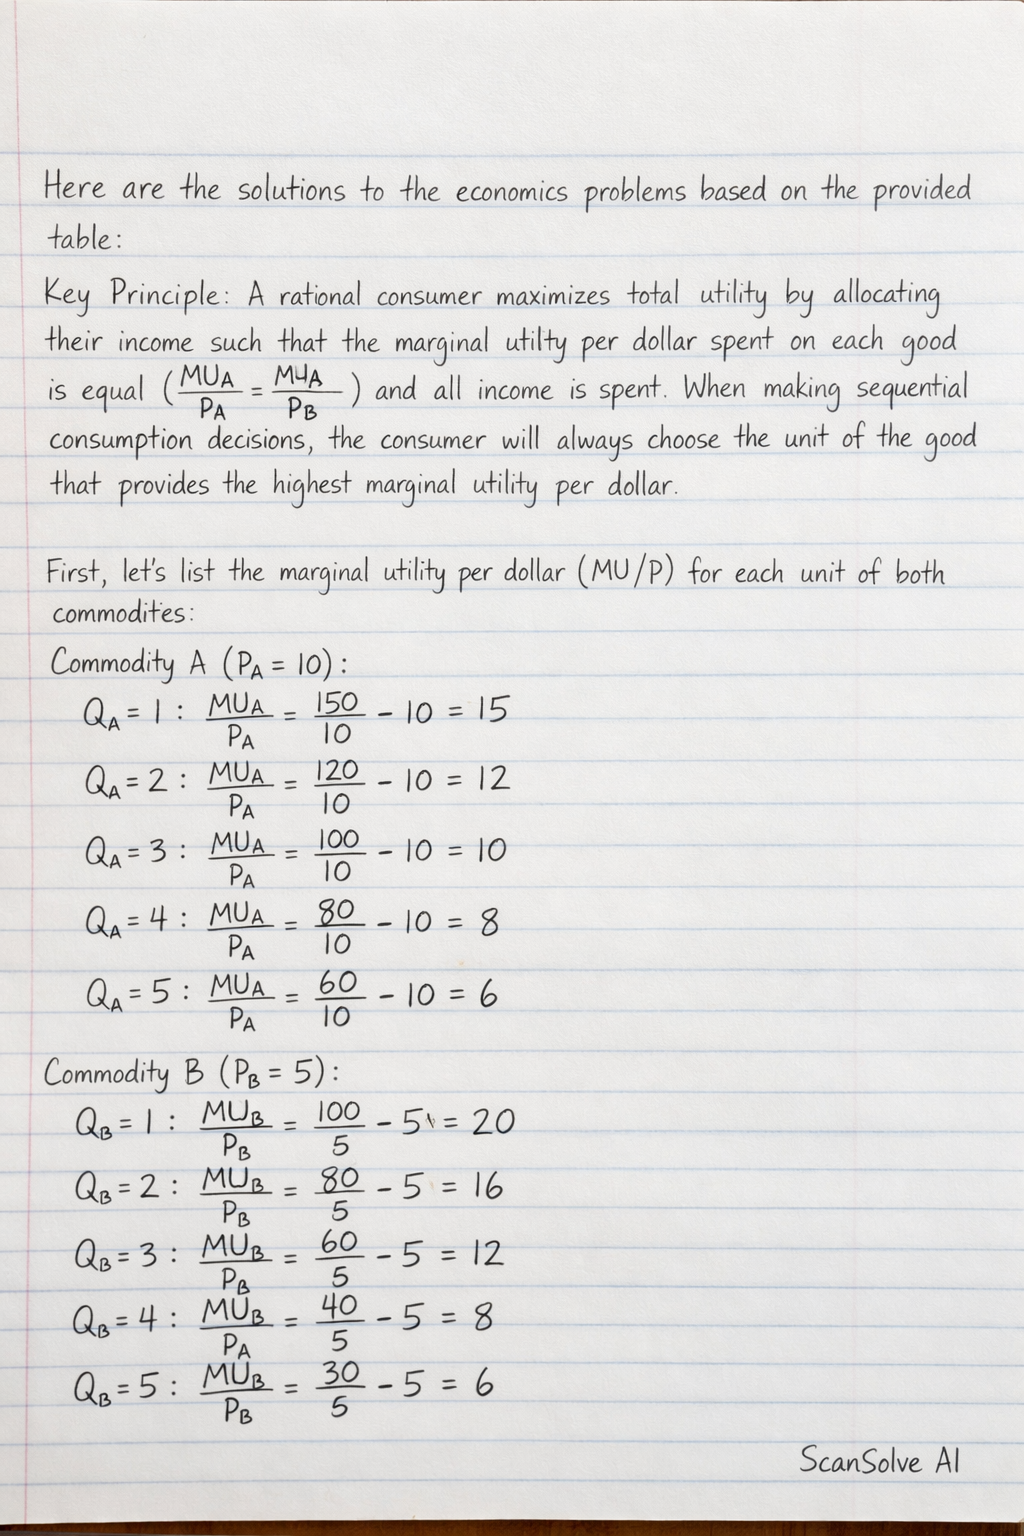 Here are the solutions to the economics problems based on the provided
table:
Key Principle: A rational consumer maximizes total utility by allocating
their income such that the marginal utilty per dollar spent on each good
is equal (MUA/PA = MUA/PB) and all income is spent. When making sequential
consumption decisions, the consumer will always choose the unit of the good
that provides the highest marginal utility per dollar.
First, let's list the marginal utility per dollar (MU/P) for each unit of both
commodites:
Commodity A (PA = 10):
QA = 1 : MUA/PA = 150/10 - 10 = 15
QA = 2 : MUA/PA = 120/10 - 10 = 12
QA = 3 : MUA/PA = 100/10 - 10 = 10
QA = 4 : MUA/PA = 80/10 - 10 = 8
QA = 5 : MUA/PA = 60/10 - 10 = 6
Commodity B (PB = 5):
QB = 1 : MUB/PB = 100/5 - 5 = 20
QB = 2 : MUB/PB = 80/5 - 5 = 16
QB = 3 : MUB/PB = 60/5 - 5 = 12
QB = 4 : MUB/PA = 40/5 - 5 = 8
QB = 5 : MUB/PB = 30/5 - 5 = 6
ScanSolve AI